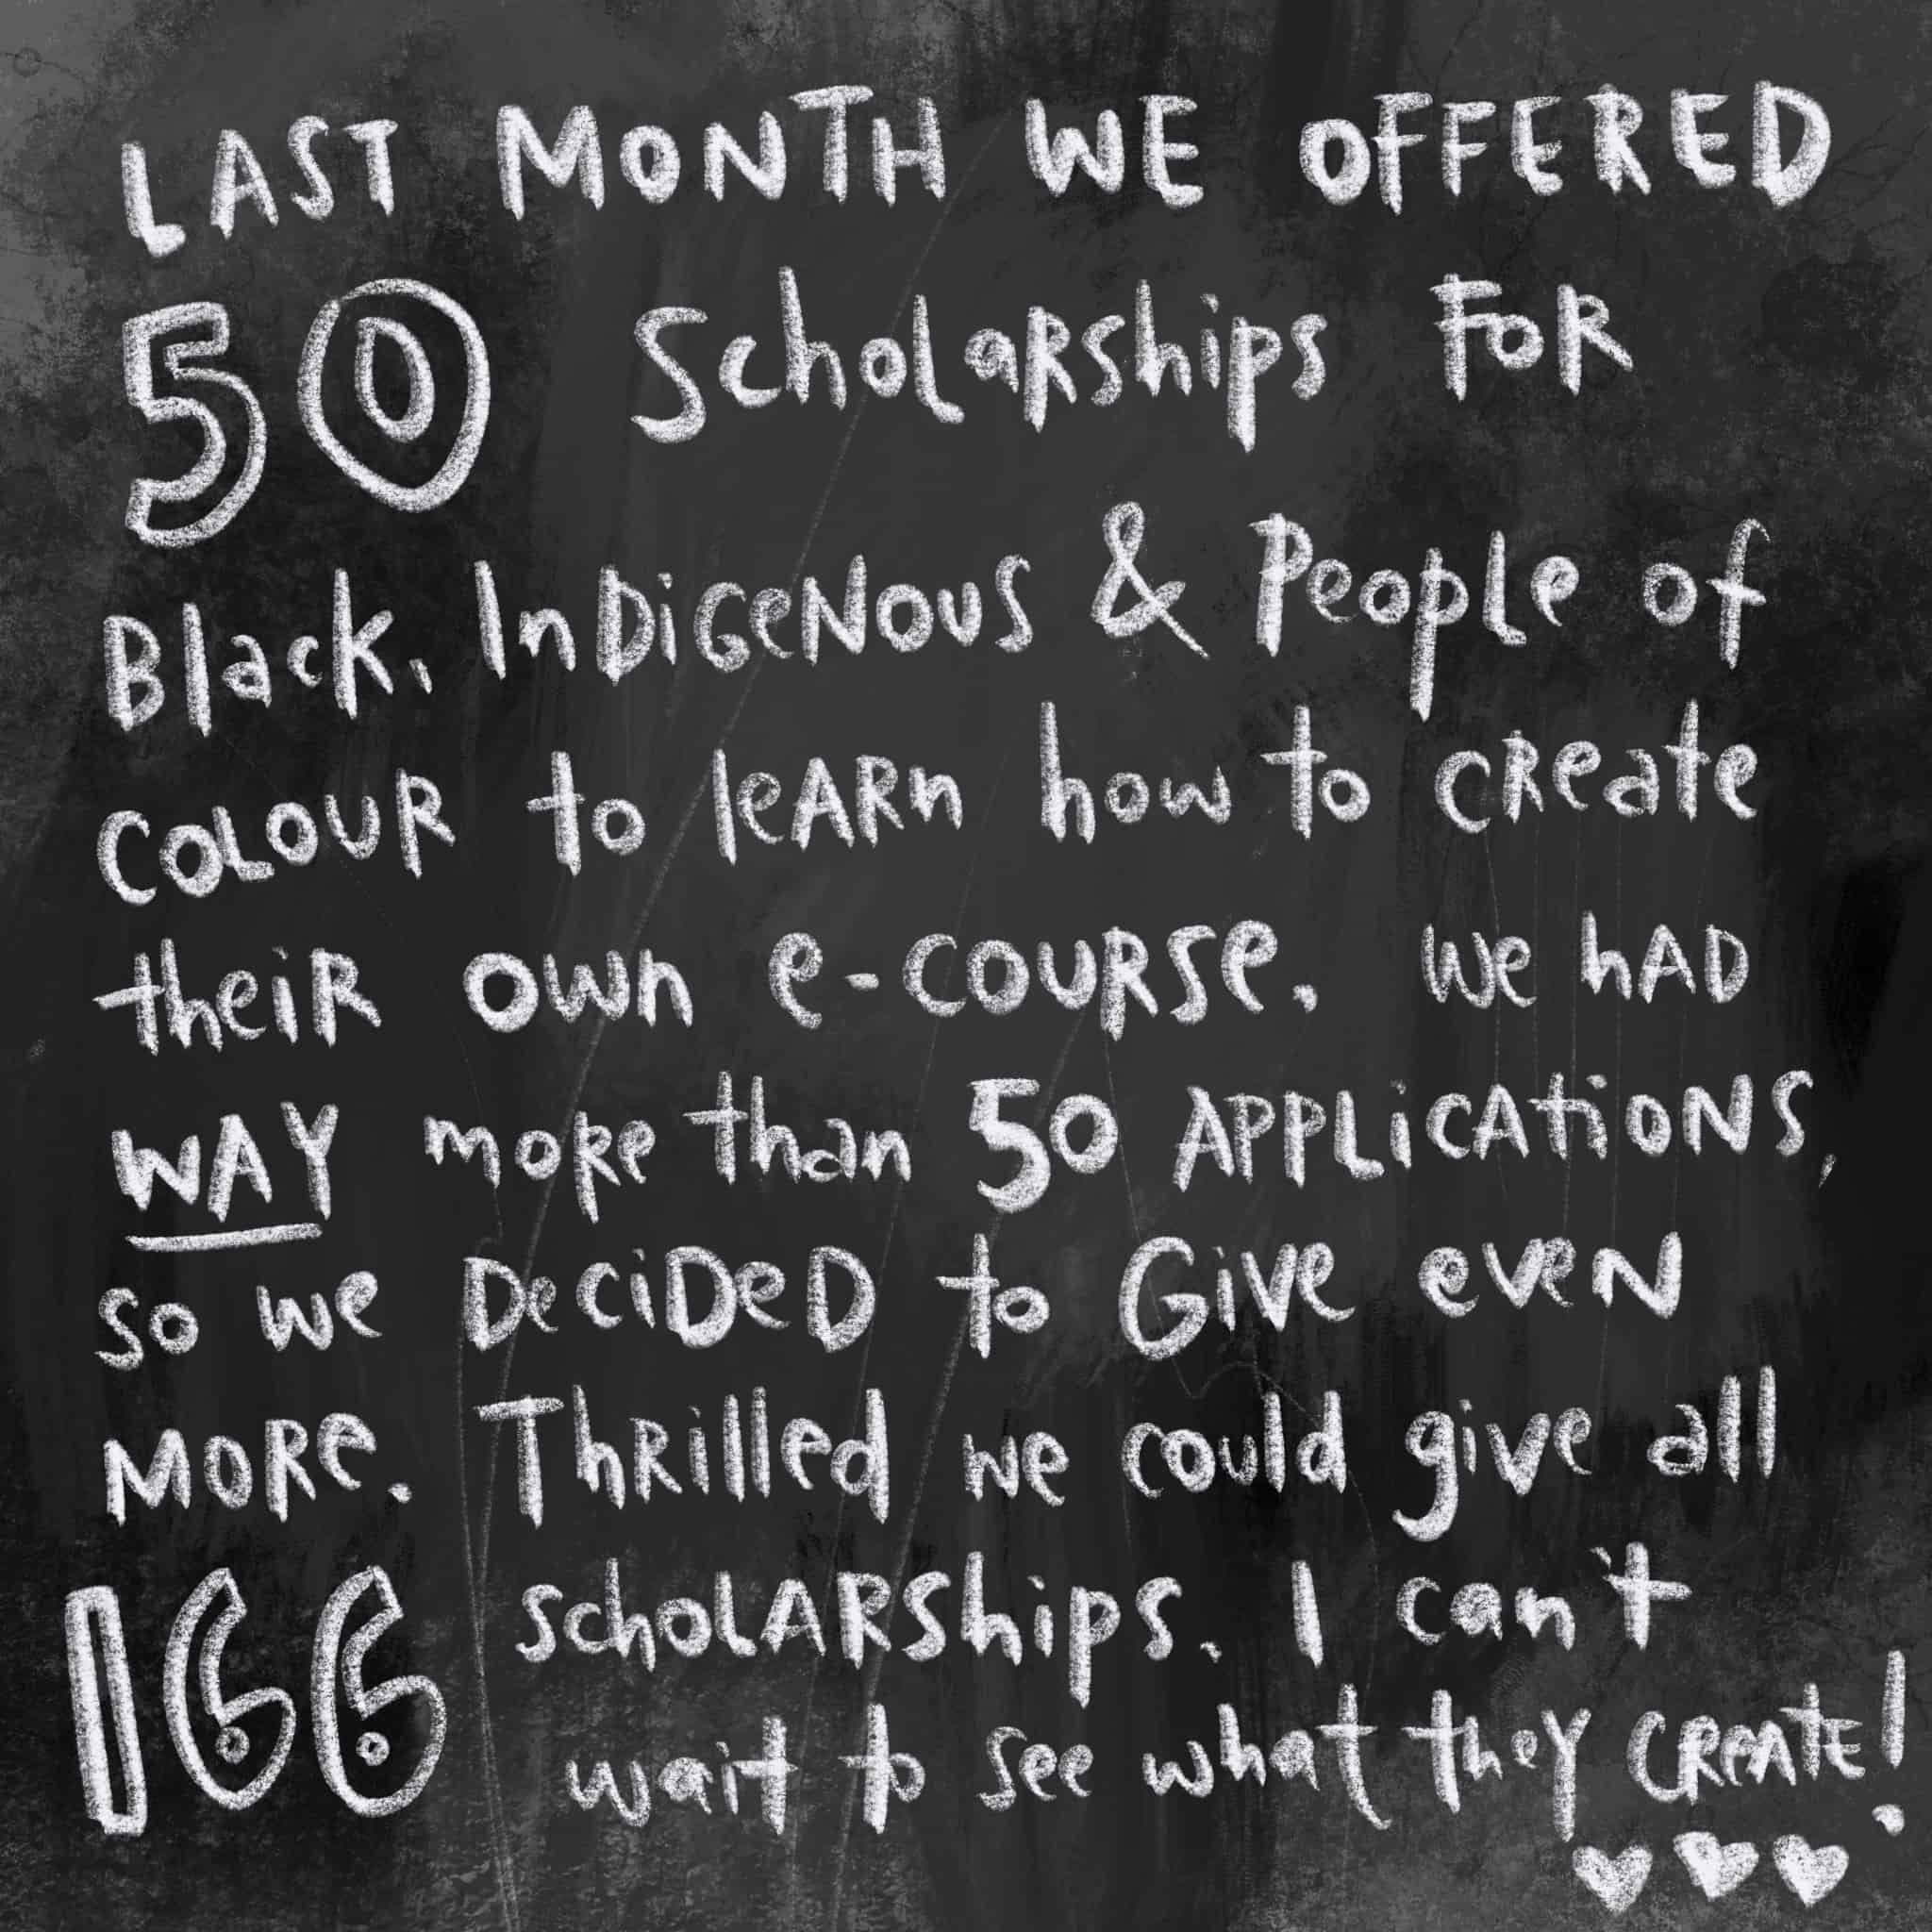 LAST MONTH WE OFFERED
50 Scholarships FOR
Black, Indigenous & People of
COLOUR to leARn how to create
their own e-course. We hAD
WAY more than 50 APPLicAtiONS,
so we DeciDeD to Give eveN
MORe. Thrilled we could give all
166 scholARShips. I can't
wait to see what they CREATE!